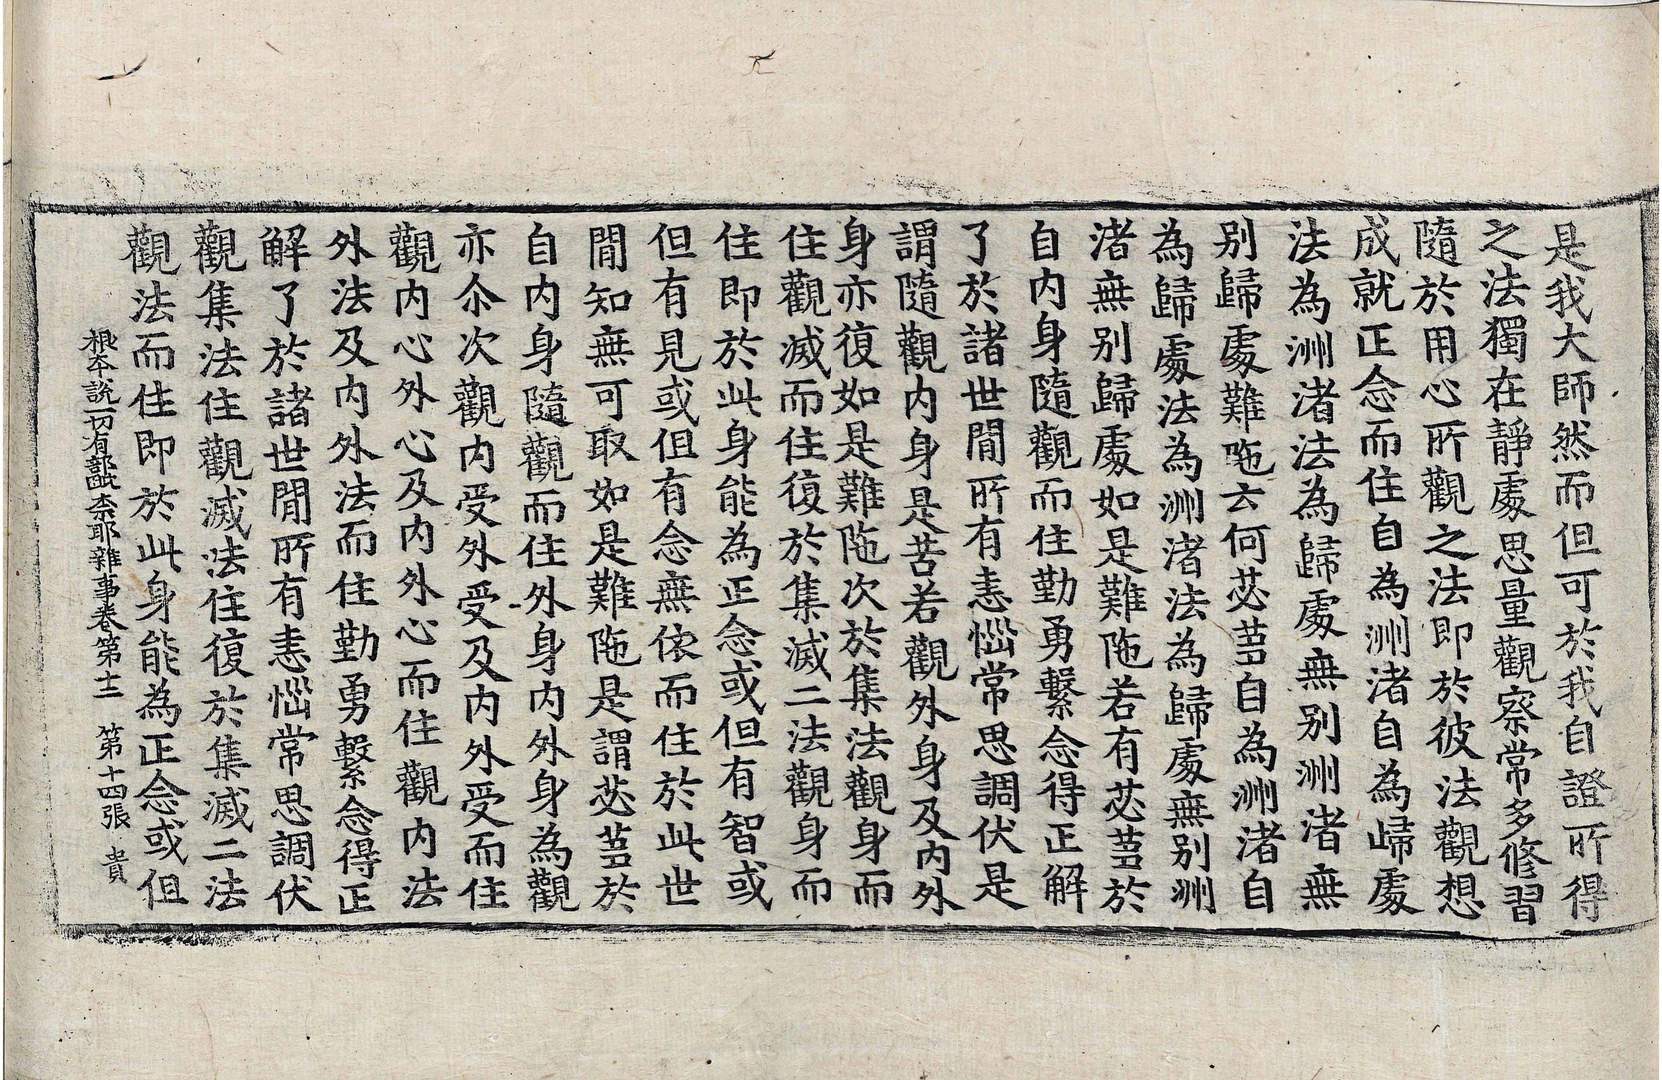 是我大師然而但可於我自證所得
之法獨在靜處思量觀察常多修習
隨於用心所觀之法即於彼法觀想
成就正念而住自為洲渚自為歸處
法為洲渚法為歸處無别洲渚無
别歸處難陁云何苾蒭自為洲渚自
為歸處法為洲渚法為歸處無别洲
渚無别歸處如是難陁若有苾蒭於
自内身隨觀而住勤勇繫念得正解
了於諸世間所有恚惱常思調伏是
謂隨觀内身是苦若觀外身及内外
身亦復如是難陁次於集法觀身而
住觀滅而住復於集滅二法觀身而
住即於此身能為正念或但有智或
但有見或但有念無依而住於此世
間知無可取如是難陁是謂苾蒭於
自内身隨觀而住外身内外身為觀
亦尒次觀内受外受及内外受而住
觀内心外心及内外心而住觀内法
外法及内外法而住勤勇繫念得正
解了於諸世間所有恚惱常思調伏
觀集法住觀滅法住復於集滅二法
觀法而住即於此身能為正念或但
根本說一切有部毗奈耶雜事卷第十二　第十四張　貴